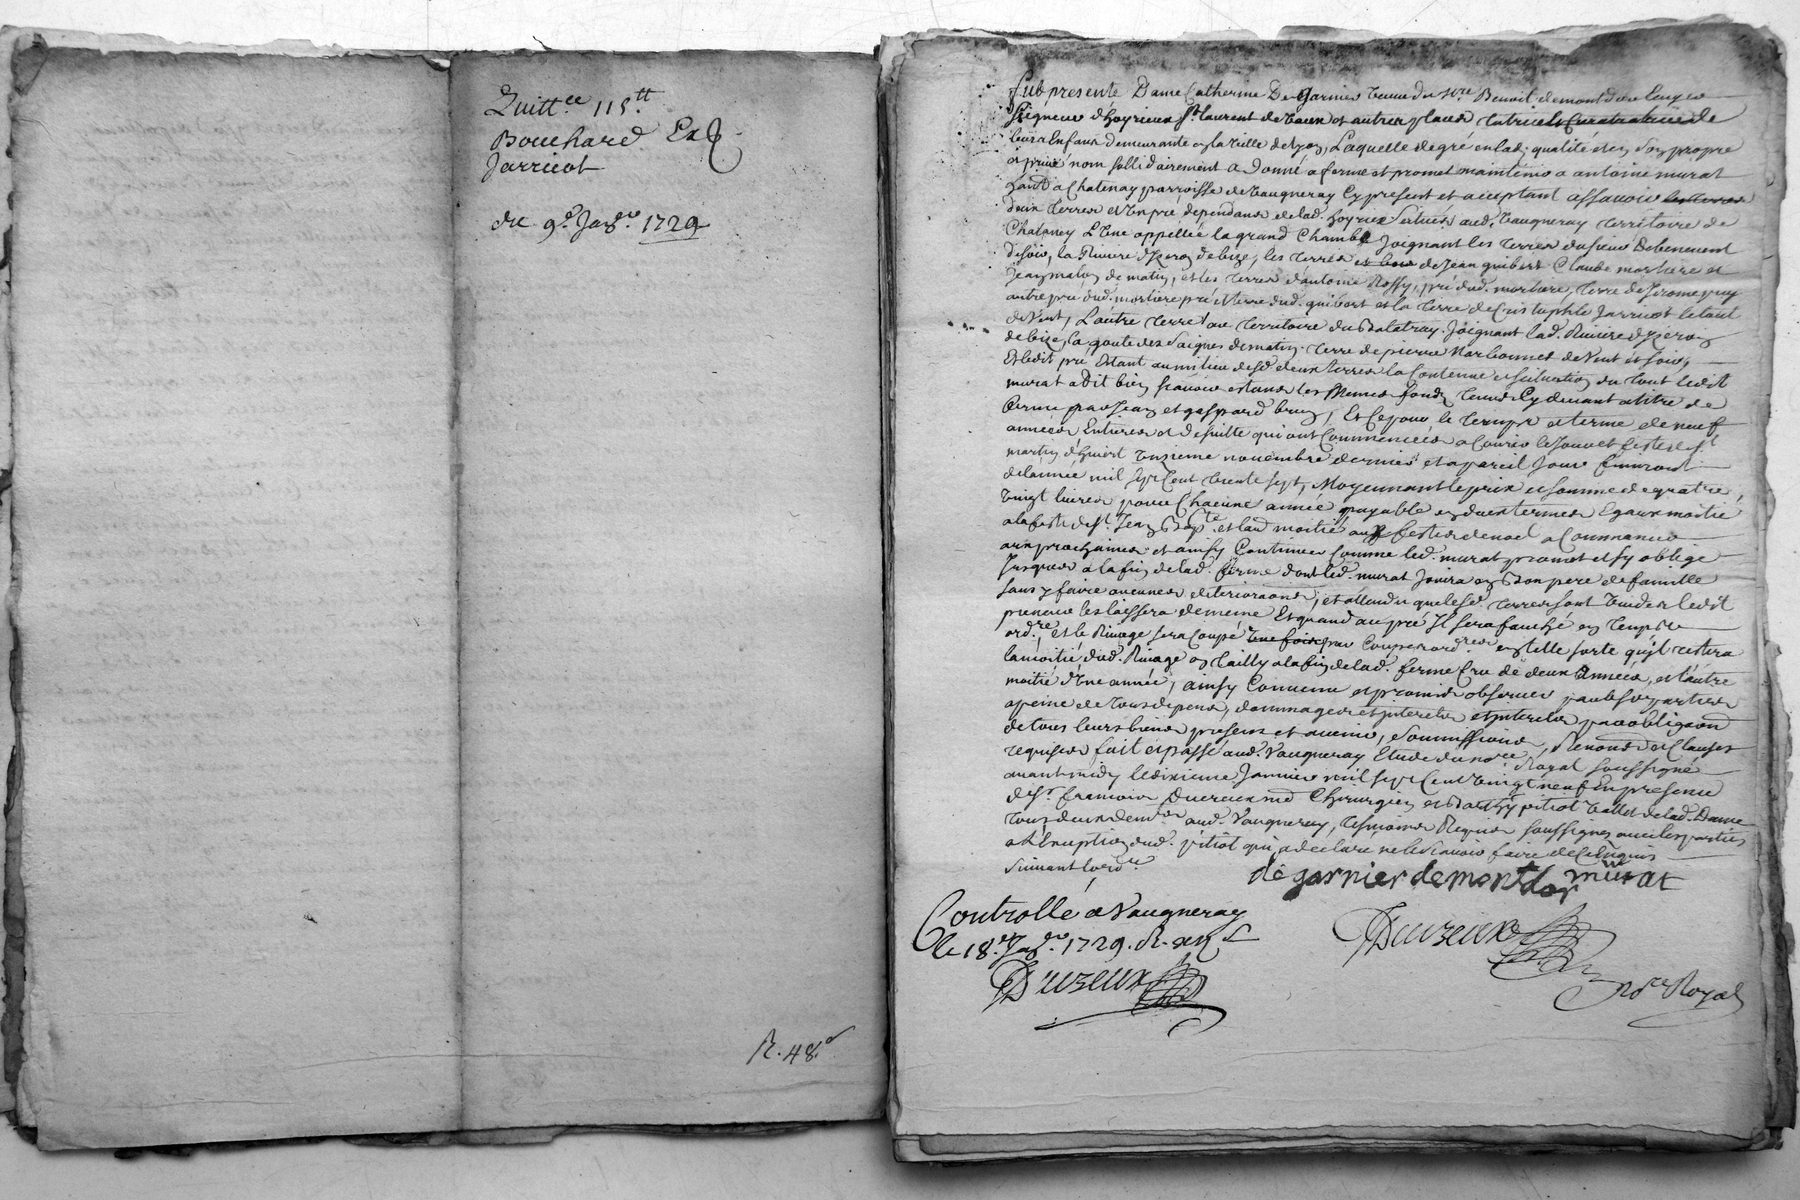 Quitt.ce 115.tt
Bouchard Ex
Jarricot
du 9.e Jan.er 1729
R. 48.s
fut presente Dame Catherine De Garnier veuve de Mre. Benoit demontdor
Seigneur d'hoyrieux St. laurent de vaux et autres places tutrice et Curatrice de
leurs Enfans demeurante en la ville de lyon, Laquelle degré en lad. qualité et en Son propre
et privé nom sollidairement a Donné a ferme et promet maintenir a antoine murat
a Chatenay parroisse de Vaugneray Cy present et acceptant assavoir les terres
deux terres et Un pré dependans de lad. hoyrieu situés aud. Vaugneray territoire de
Chatanay L'Une appellée la grand Chamb Joignant les terres du sieur Debenevent
de soir, la Riviere d'yzeron de bize, les terres et bois de Jean guibert Claude mortiere et
Jean matin de matin, et les terres d'antoine Roffy, pré dud. mortiere, terre de Jerome puy
autre pré dud. mortiere pré et terre dud. guibert et la terre de Cristophle Jarricot le tout
de Vent, L'autre terre au territoire du Balatray Joignant lad. Riviere d'yzeron
de bize, la goute des Saignes de matin, terre de pierre Narbonnet de Vent et soir,
Et ledit pré Estant au milieu desd. deux terres la Contenue et situation du tout ledit
murat a Dit bien sçavoir estans les Memes fonds tenus Cy devant a titre de
ferme par Jean et gaspard brun, Et Ce pour le temps et terme de neuf
années Entieres et de suitte qui ont Commencées a Courir le Jour et feste de St.
martin d'hivert Unzieme novembre dernier et a pareil Jour finiront
de lannée mil sept Cent trente sept, Moyennant le prix et somme de quatre
vingt livres pour Chacune année payable en deux termes Egaux moitié
a la feste de St. Jean Bapte. et lau. moitié aux festes de noel a Commancer
aux prochaines et ainsy Continuer Comme led. murat promet et sy oblige
Jusques a la fin de lad. ferme dont led. murat Jouira en Bon pere de famille
sans y faire aucunes deterioraons, et attendu que lesd. terres sont Vuides ledit
preneur les laissera de meme Et quand au pré Il sera fauché en temps
ordre. et le Rivage sera Coupé Une fois par Coupes ordres. en telle sorte qu'il restera
la moitié dud. Rivage en tailly a la fin de lad. ferme Cru de deux années, et l'autre
moitié d'Une année, ainsy Convenu et promis observer par les parties
a peine de tous depens, dommages et interets et interets par obligaon
de tous leurs biens presens et avenir, soumissions, Renons. et Clauses
requises fait et passé aud. Vaugneray Etude du nore. Royal soussigné
avant midy le dixieme Janvier mil sept Cent Vingt neuf En presence
de Sr. francois Ducreux md Chirurgien et Barthy. pitiot Vallet de lad. Dame
tous deux demts. aud. Vaugneray, tesmoins Requis soussignez avec les parties
a L'Exception dud. pitiot qui a declaré ne le Sçavoir faire de Ce Enquis
Suivant l'ord.ce
de garnier de montdor murat
Controllé a Vaugneray
le 18.e Jan.er 1729. R.
Duzeux
Duzeux
No.re Royal